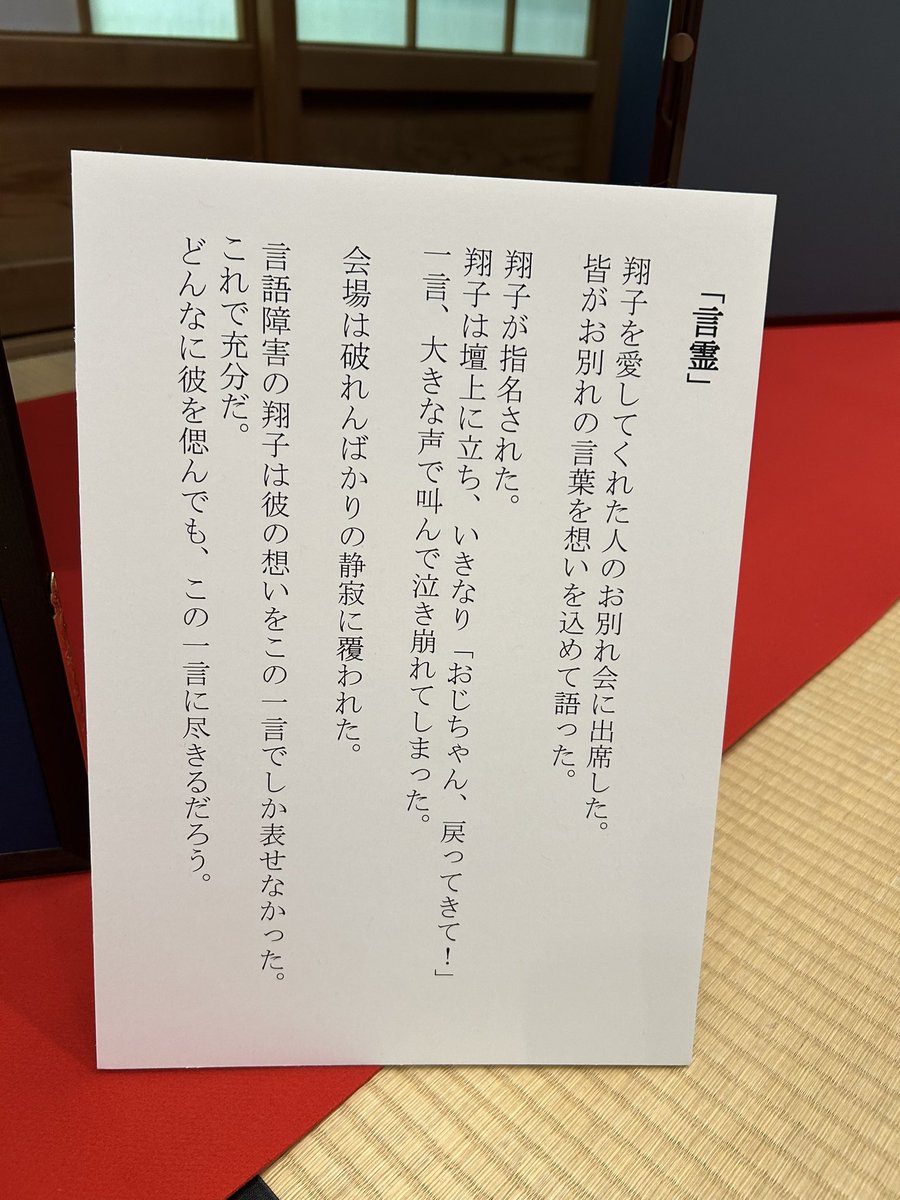 「言霊」
翔子を愛してくれた人のお別れ会に出席した。
皆がお別れの言葉を想いを込めて語った。
翔子が指名された。
翔子は壇上に立ち、いきなり「おじちゃん、戻ってきて！」
一言、大きな声で叫んで泣き崩れてしまった。
会場は破れんばかりの静寂に覆われた。
言語障害の翔子は彼の想いをこの一言でしか表せなかった。
これで充分だ。
どんなに彼を偲んでも、この一言に尽きるだろう。